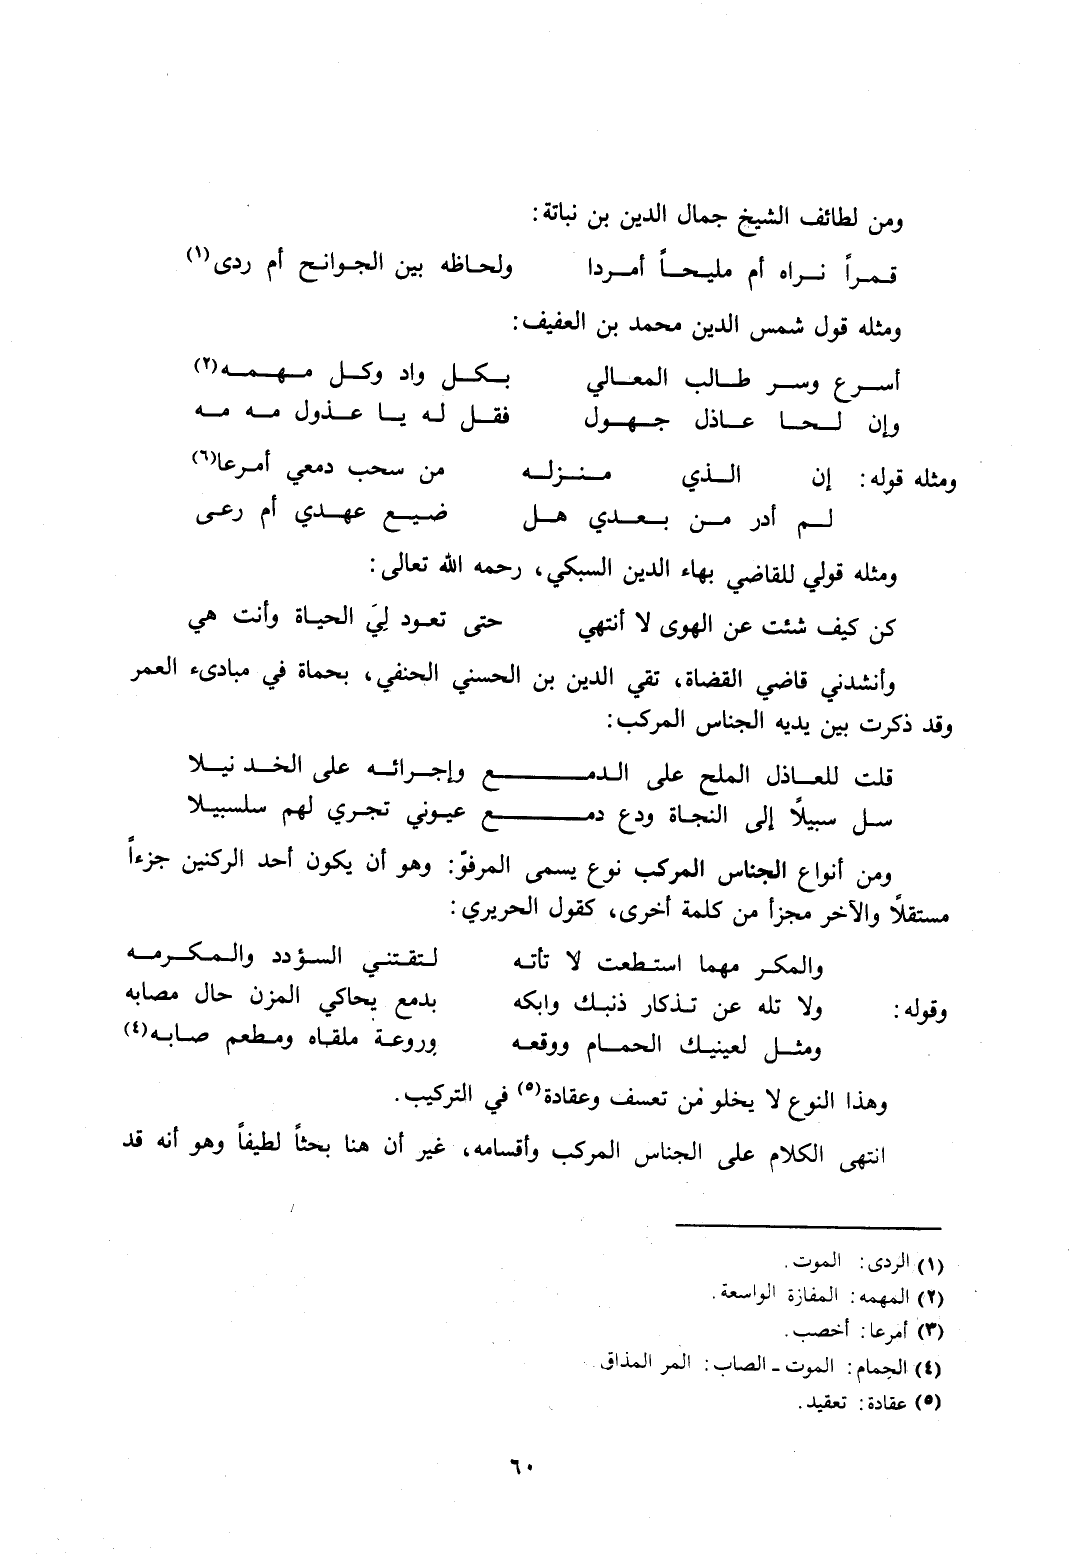 ومن لطائف الشيخ جمال الدين بن نباتة:
قمراً نراه أم مليحاً أمردا ولحاظه بين الجوانح أم ردى(١)
ومثله قول شمس الدين محمد بن العفيف:
أسرع وسر طالب المعالي بكل واد وكل مهمه(٢)
وإن لحا عاذل جهول فقل له يا عذول مه مه
ومثله قوله: إن الذي منزله من سحب دمعي أمرعا(٦)
لم أدر من بعدي هل ضيع عهدي أم رعى
ومثله قولي للقاضي بهاء الدين السبكي، رحمه الله تعالى:
كن كيف شئت عن الهوى لا أنتهي حتى تعود لِيَ الحياة وأنت هي
وأنشدني قاضي القضاة، تقي الدين بن الحسني الحنفي، بحماة في مبادىء العمر
وقد ذكرت بين يديه الجناس المركب:
قلت للعاذل الملح على الدمع وإجرائه على الخد نيلا
سل سبيلاً إلى النجاة ودع دمع عيوني تجري لهم سلسبيلا
ومن أنواع الجناس المركب نوع يسمى المرفوّ: وهو أن يكون أحد الركنين جزءاً
مستقلاً والآخر مجزأ من كلمة أخرى، كقول الحريري:
والمكر مهما استطعت لا تأته لتقتني السؤدد والمكرمه
وقوله: ولا تله عن تذكار ذنبك وابكه بدمع يحاكي المزن حال مصابه
ومثل لعينيك الحمام ووقعه وروعة ملقاه ومطعم صابه(٤)
وهذا النوع لا يخلو من تعسف وعقادة(٥) في التركيب.
انتهى الكلام على الجناس المركب وأقسامه، غير أن هنا بحثاً لطيفاً وهو أنه قد
(١) الردى: الموت.
(٢) المهمه: المفازة الواسعة.
(٣) أمرعا: أخصب.
(٤) الحمام: الموت ـ الصاب: المر المذاق.
(٥) عقادة: تعقيد.
٦٠